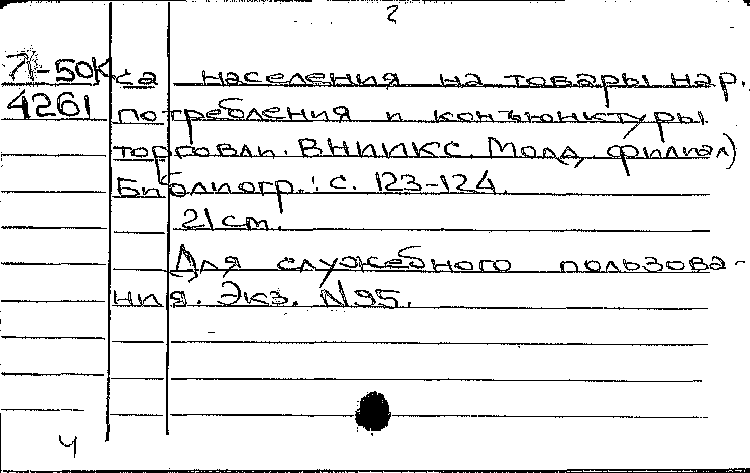 2
7-50К са населения на товары нар.
4261 потребления и конъюнктуры
торговли. ВНИИКС. Молд. филиал)
Библиогр.: с. 123-124.
21 cm.
Для служебного пользова-
ния. Экз. N 95.
4